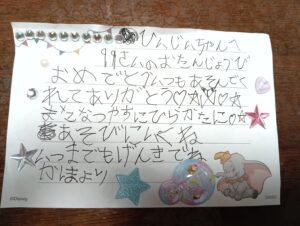 ひんじいちゃんへ
99さんのおたんじょうび
おめでとういつもあそんでく
れてありがとう♡☆♡☆♡☆
なつやすにひらかたに○☆
あそびにいくね
いつまでもげんきでね
かんなより
©Disney